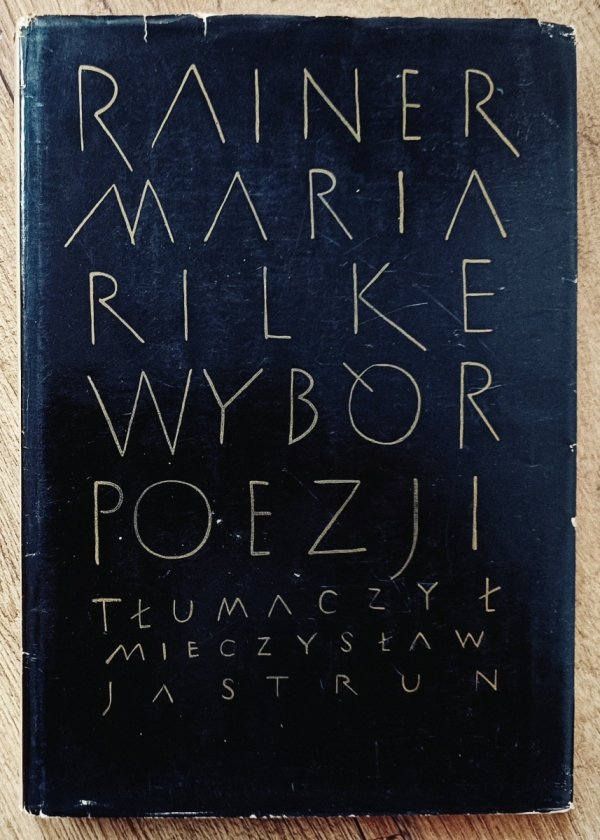 RAINER
MARIA
RILKE
WYBÓR
POEZJI
TŁUMACZYŁ
MIECZYSŁAW
JASTRUN